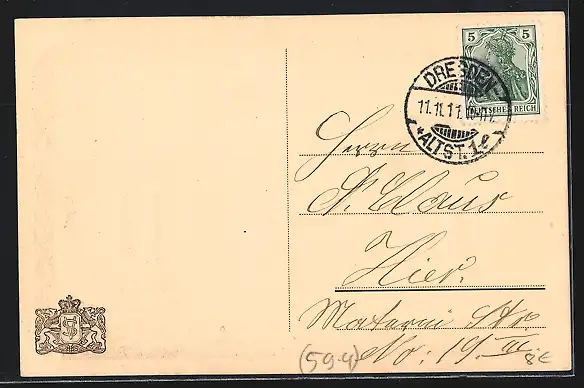 5 5
DEUTSCHES REICH
DRESDEN
11.11.11.
*ALTST. 1 l
Herrn
Claus
Hier.
Materni Str.
No: 19 III.
(59.4)
8€